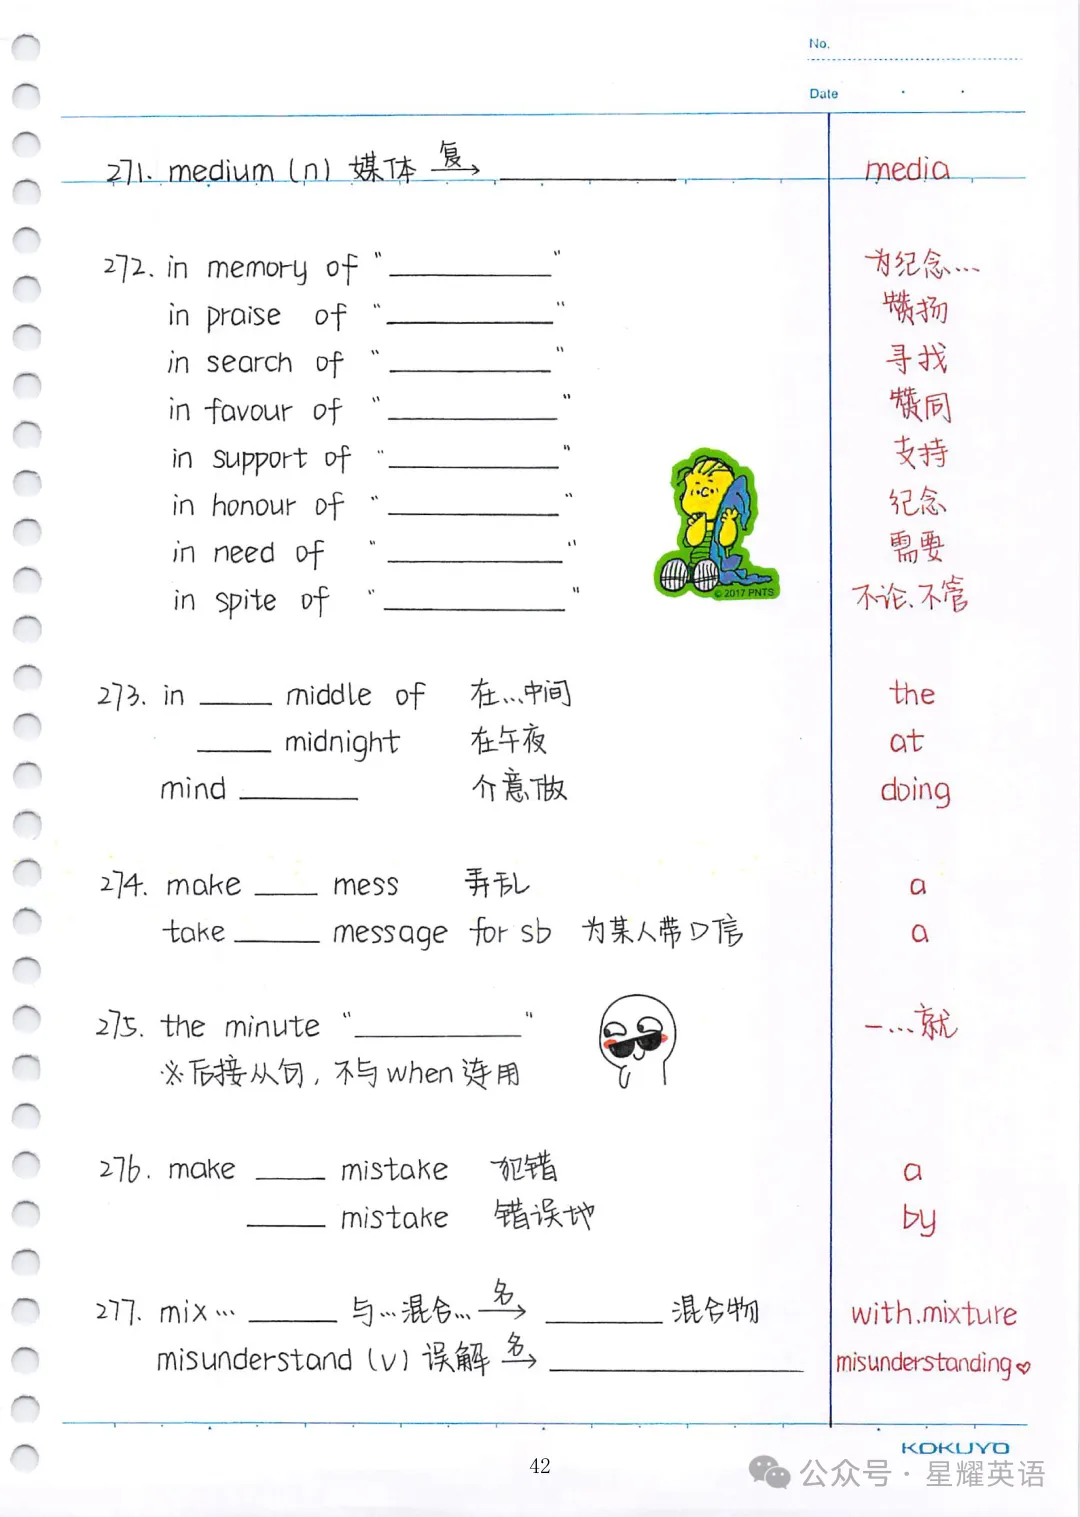 No.
Date
271. medium (n) 媒体 复→ ________ media
272. in memory of "________" 为纪念...
in praise of "________" 赞扬
in search of "________" 寻找
in favour of "________" 赞同
in support of "________" 支持
in honour of "________" 纪念
in need of "________" 需要
in spite of "________" 不论、不管
© 2017 PNTS
273. in ____ middle of 在...中间 the
____ midnight 在午夜 at
mind ________ 介意做 doing
274. make ____ mess 弄乱 a
take ____ message for sb 为某人带口信 a
275. the minute "________" 一...就
※后接从句, 不与when连用
276. make ____ mistake 犯错 a
____ mistake 错误地 by
277. mix... ____ 与...混合... 名→ ________ 混合物 with.mixture
misunderstand (v) 误解 名→ ________ misunderstanding♡
KOKUYO
42
公众号·星耀英语